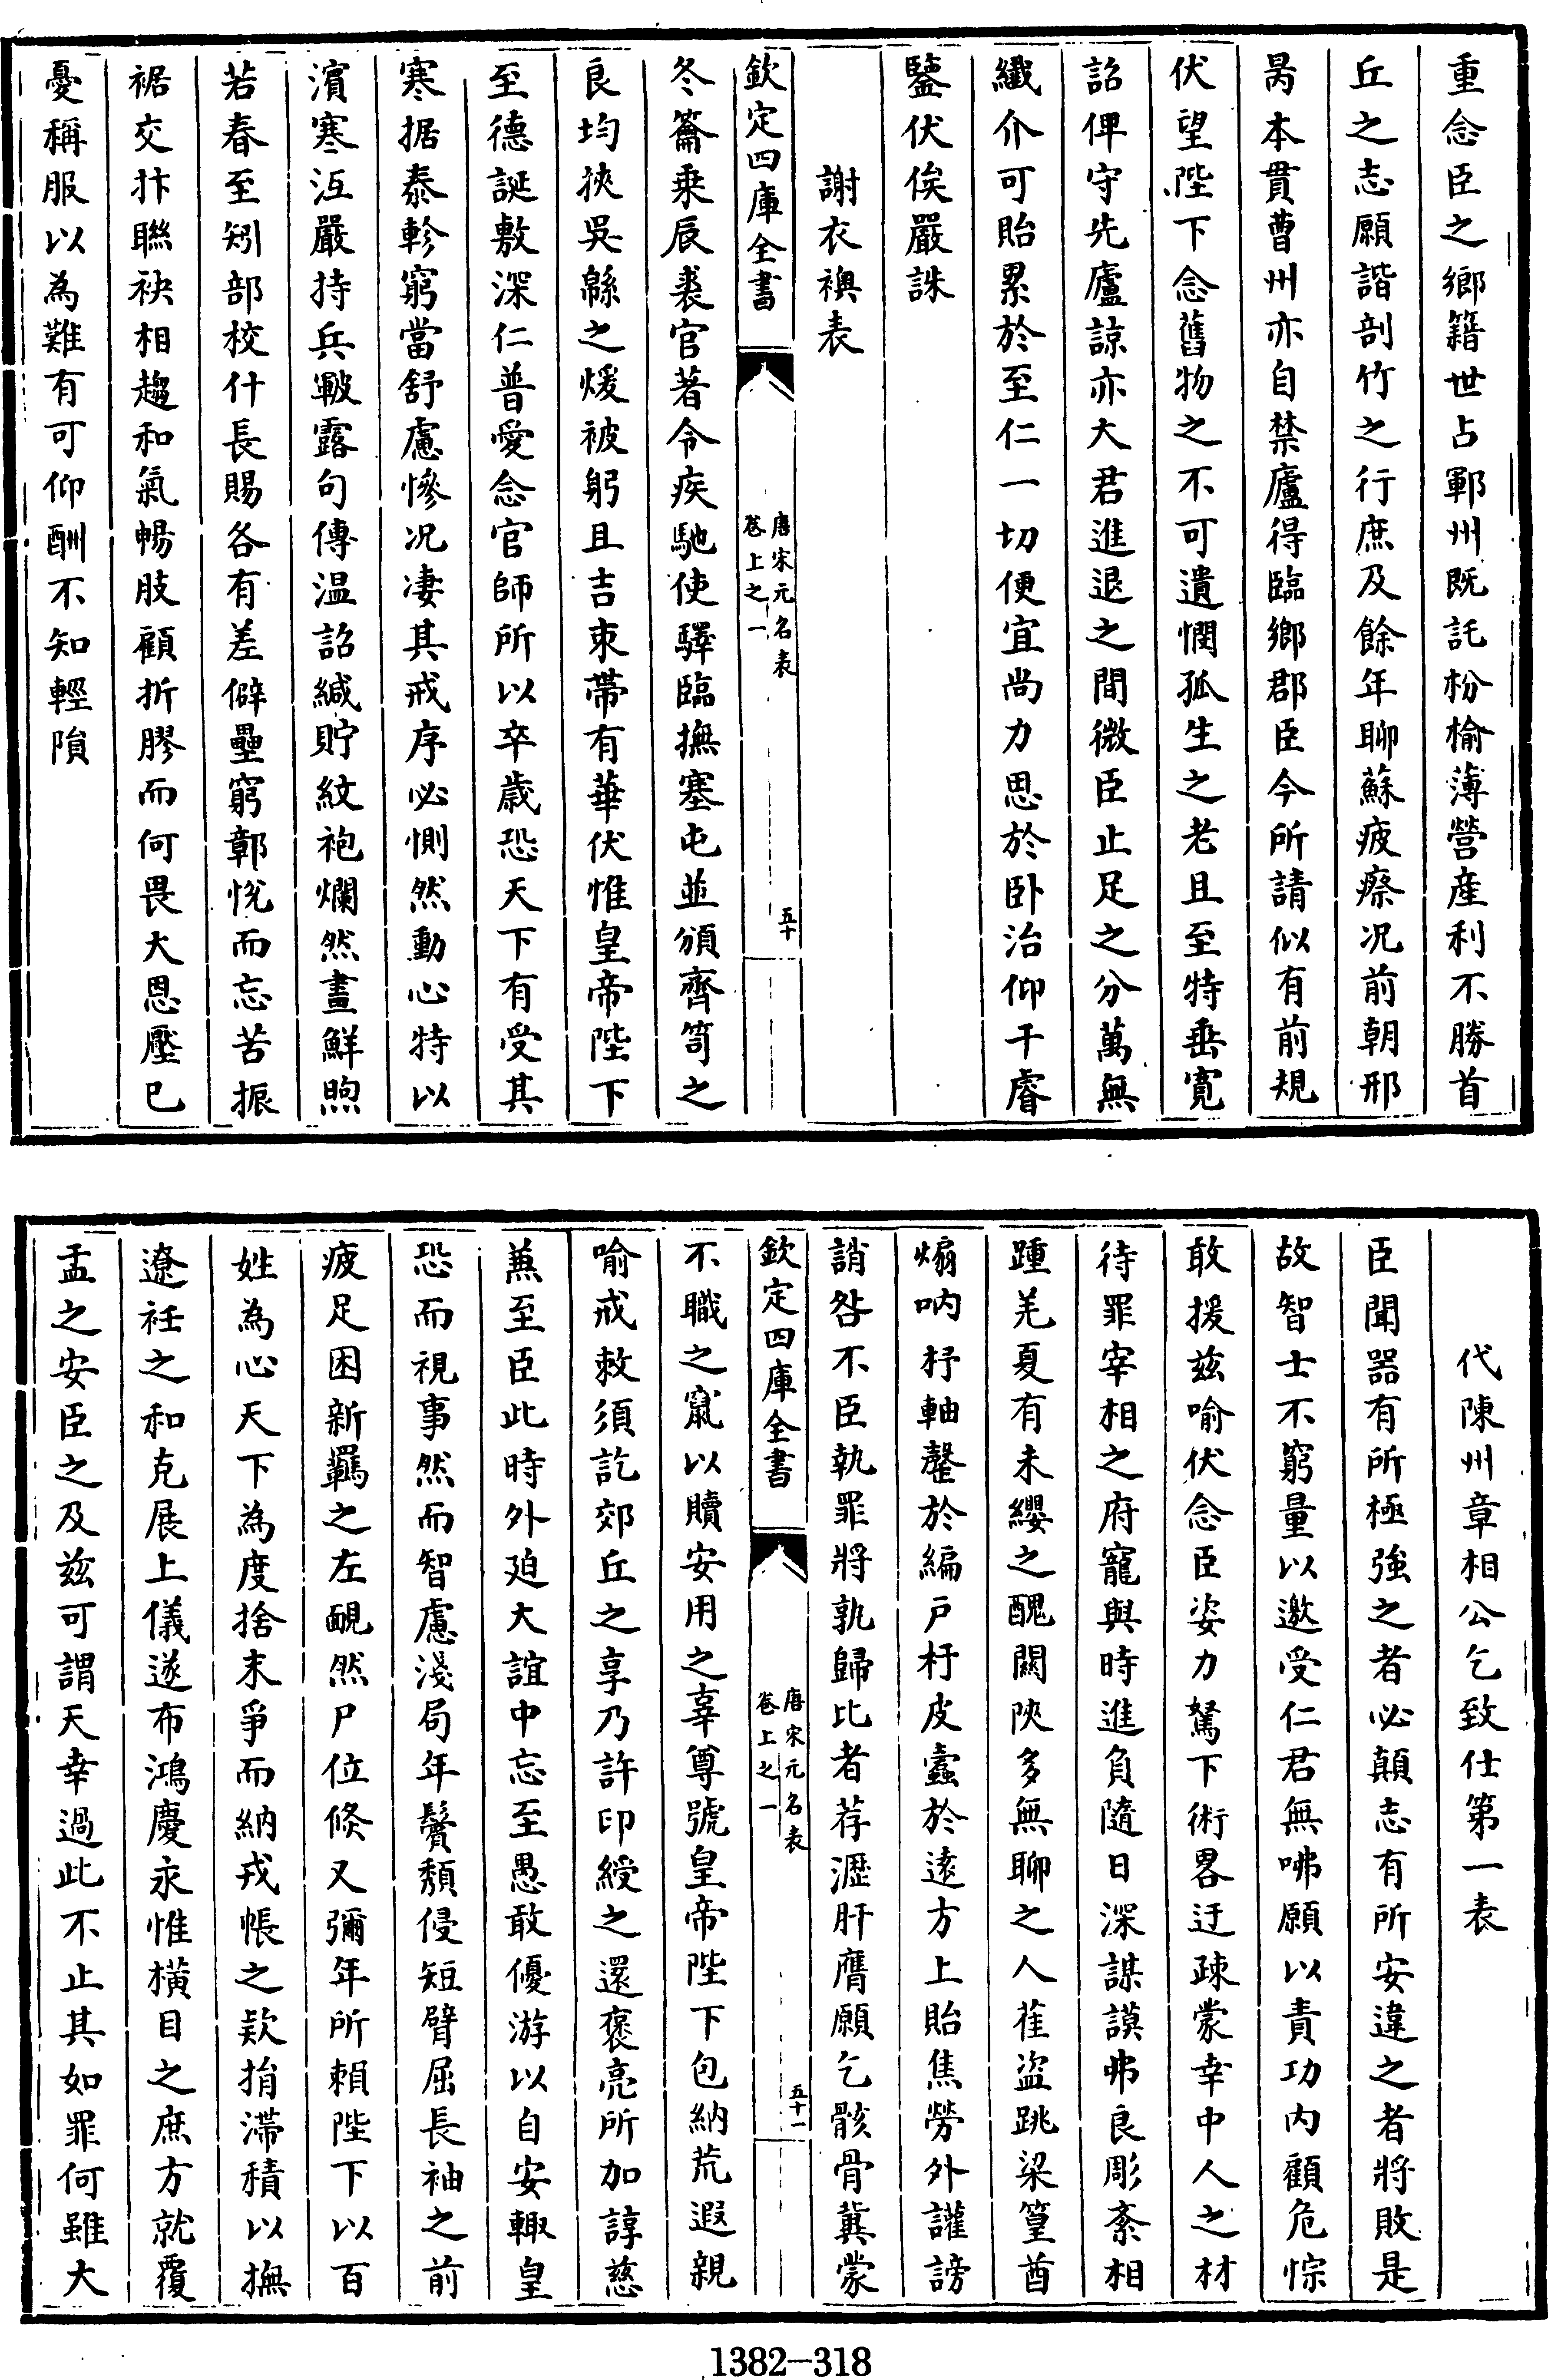 重念臣之鄉籍世占鄆州既託枌榆薄營産利不勝首
丘之志願諧剖竹之行庶及餘年聊蘇疲瘵况前朝邢
昺本貫曹州亦自禁廬得臨鄉郡臣今所請似有前規
伏望陛下念舊物之不可遺憫孤生之老且至特垂寬
詔俾守先廬諒亦大君進退之間微臣止足之分萬無
纖介可貽累於至仁一切便宜尚力思於卧治仰干睿
鑒伏俟嚴誅
謝衣襖表
欽定四庫全書
唐宋元名表
卷上之一
五十
冬籥乗辰裘官著令疾馳使驛臨撫塞屯並頒齊笥之
良均挾吳緜之煖被躬且吉束帶有華伏惟皇帝陛下
至德誕敷深仁普愛念官師所以卒歳恐天下有受其
寒据泰軫窮當舒慮慘况淒其戒序必惻然動心特以
濵寒沍嚴持兵皸露句傳温詔緘貯紋袍爛然晝鮮煦
若春至矧部校什長賜各有差僻壘窮鄣恱而忘苦振
裾交抃聯袂相趨和氣暢肢顧折膠而何畏大恩壓已
憂稱服以為難有可仰酬不知輕隕
代陳州章相公乞致仕第一表
臣聞器有所極強之者必顛志有所安違之者將敗是
故智士不窮量以邀受仁君無咈願以責功内顧危悰
敢援兹喻伏念臣姿力駑下術畧迂疎蒙幸中人之材
待罪宰相之府寵與時進負隨日深謀謨弗良彫紊相
踵羌夏有未纓之醜関陜多無聊之人萑盗跳梁篁酋
煽吶杼軸罄於編戸杅皮蠧於逺方上貽焦勞外讙謗
誚咎不臣執罪將孰歸比者荐瀝肝膺願乞骸骨冀蒙
欽定四庫全書
唐宋元名表
卷上之一
五十一
不職之竄以贖安用之辜尊號皇帝陛下包納荒遐親
喻戒敕須訖郊丘之享乃許印綬之還褒亮所加諄慈
兼至臣此時外廹大誼中忘至愚敢優游以自安輙皇
恐而視事然而智慮淺局年鬢頽侵短臂屈長袖之前
疲足困新羈之左靦然尸位倐又彌年所頼陛下以百
姓為心天下為度捨末爭而納戎帳之欵捐滞積以撫
遼衽之和克展上儀遂布鴻慶永惟横目之庶方就覆
盂之安臣之及兹可謂天幸過此不止其如罪何雖大
1382-318